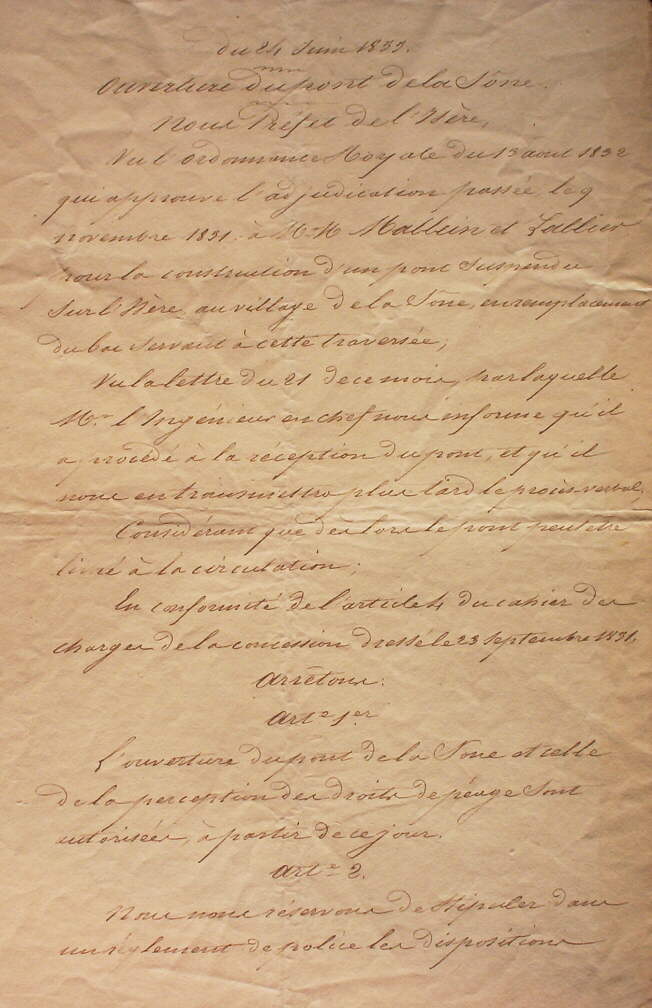 du 24 Juin 1833.
Ouverture du pont de la Sône.
Nous Préfet de l'Isère,
Vu l'ordonnance Royale du 13 aout 1832
qui approuve l'adjudication passée, le 9
novembre 1831. à M.M Mallein et Lallier
pour la construction d'un pont suspendu
sur l'Isère, au village de la Sône, en remplacement
du bac servant à cette traversée;
Vu la lettre du 21 de ce mois, par laquelle
Mr. l'Ingénieur en chef nous informe qu'il
a procédé à la réception du pont, et qu'il
nous en transmettra plus tard le procès-verbal,
Considérant que dès lors le pont peut être
livré à la circulation;
En conformité de l'article 4 du cahier des
charges de la concession dressé le 23 septembre 1831,
Arrêtons:
Art.e 1er
L'ouverture du pont de la Sone et celle
de la perception des droits de péage sont
autorisées, à partir de ce jour.
Art.e 2.
Nous nous réservons de stipuler dans
un réglement de police les dispositions